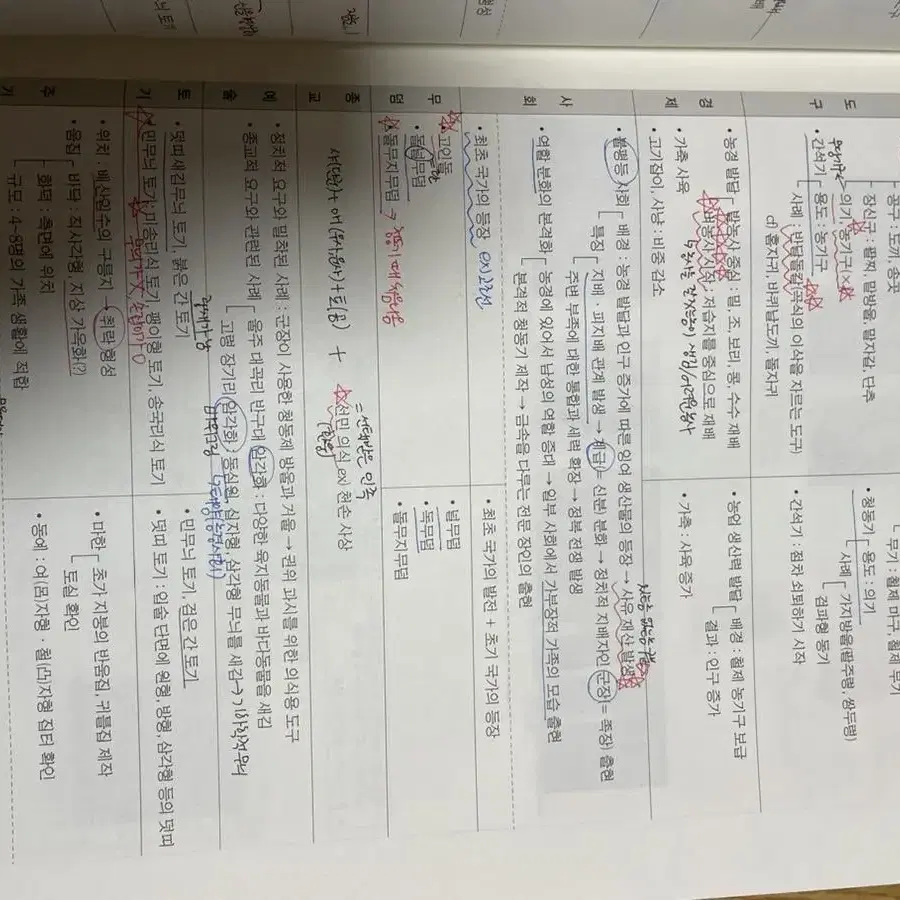 도구
공구 : 도끼, 송곳
장신구 : 팔찌, 말방울, 말자갈, 단추
의기
농기구(×)
• 간석기
용도 : 농기구
사례 : 반달돌칼(곡식의 이삭을 자르는 도구)
cf) 홈자귀, 바퀴날도끼, 돌자귀
무기 : 철제 마구, 철제 무기
• 청동기
용도 : 의기
사례
가지방울(팔주령, 쌍두령)
검파형 동기
• 간석기 : 점차 쇠퇴하기 시작
경제
• 농경 발달
밭농사 중심 : 밀, 조, 보리, 콩, 수수 재배
벼농사 시작 : 저습지를 중심으로 재배
• 가축 사육
• 고기잡이, 사냥 : 비중 감소
• 농업 생산력 발달
배경 : 철제 농기구 보급
결과 : 인구 증가
• 가축 : 사육 증가
사회
• 불평등 사회
배경 : 농경 발달과 인구 증가에 따른 잉여 생산물의 등장 → 사유 재산 발생
특징
지배 · 피지배 관계 발생 → 계급(= 신분) 분화 → 정치적 지배자인 군장(= 족장) 출현
주변 부족에 대한 통합과 세력 확장 → 정복 전쟁 발생
• 역할 분화의 본격화
농경에 있어서 남성의 역할 증대 → 일부 사회에서 가부장적 가족의 모습 출현
본격적 청동기 제작 → 금속을 다루는 전문 장인의 출현
• 최초 국가의 등장 ex) 고조선
• 최초 국가의 발전 + 초기 국가의 등장
무덤
• 고인돌
• 돌널무덤
• 돌무지무덤
• 널무덤
• 독무덤
• 돌무지무덤
종교
+
선민 의식 ex) 천손 사상
= 선택받은 민족
예술
• 정치적 요구와 밀착된 사례 : 군장이 사용한 청동제 방울과 거울 → 권위 과시를 위한 의식용 도구
• 종교적 요구와 관련된 사례
울주 대곡리 반구대 암각화 : 다양한 육지동물과 바다동물을 새김
고령 장기리 암각화 : 동심원, 십자형, 삼각형 무늬를 새김 → 기하학적 무늬
토기
• 덧띠새김무늬 토기, 붉은 간 토기
• 민무늬 토기 : 미송리식 토기, 팽이형 토기, 송국리식 토기
• 민무늬 토기, 검은 간 토기
• 덧띠 토기 : 입술 단면에 원형, 방형, 삼각형 등의 덧띠
주
• 위치 : 배산임수의 구릉지 → 취락 형성
• 움집
바닥 : 직사각형, 지상 가옥화(?)
화덕 : 측면에 위치
규모 : 4~8명의 가족 생활에 적합
• 마한
초가 지붕의 반움집, 귀틀집 제작
토실 확인
• 동예 : 여(呂)자형 · 철(凸)자형 집터 확인